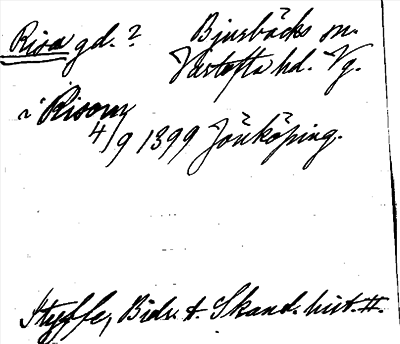 Risa gd. ? Bjurbäcks sn.
Vartofta hd. Vg.
i Risom
4/9 1399 Jönköping.
Styffe, Bidr. t. Skand. hist. II.